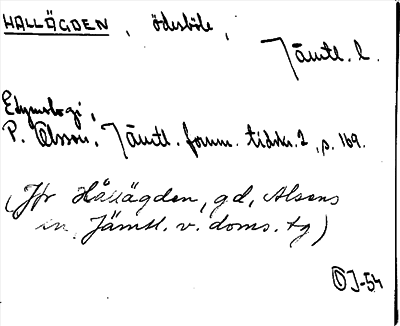 HALLÄGDEN, ödesböle,
Jämtl. l.
Etymologi,
P. Olsson, Jämtl. fornm. tidskr. 2, s. 169.
(Jfr Hållägden, gd, Alsens
sn, Jämtl. v. doms. tg)
OJ-54